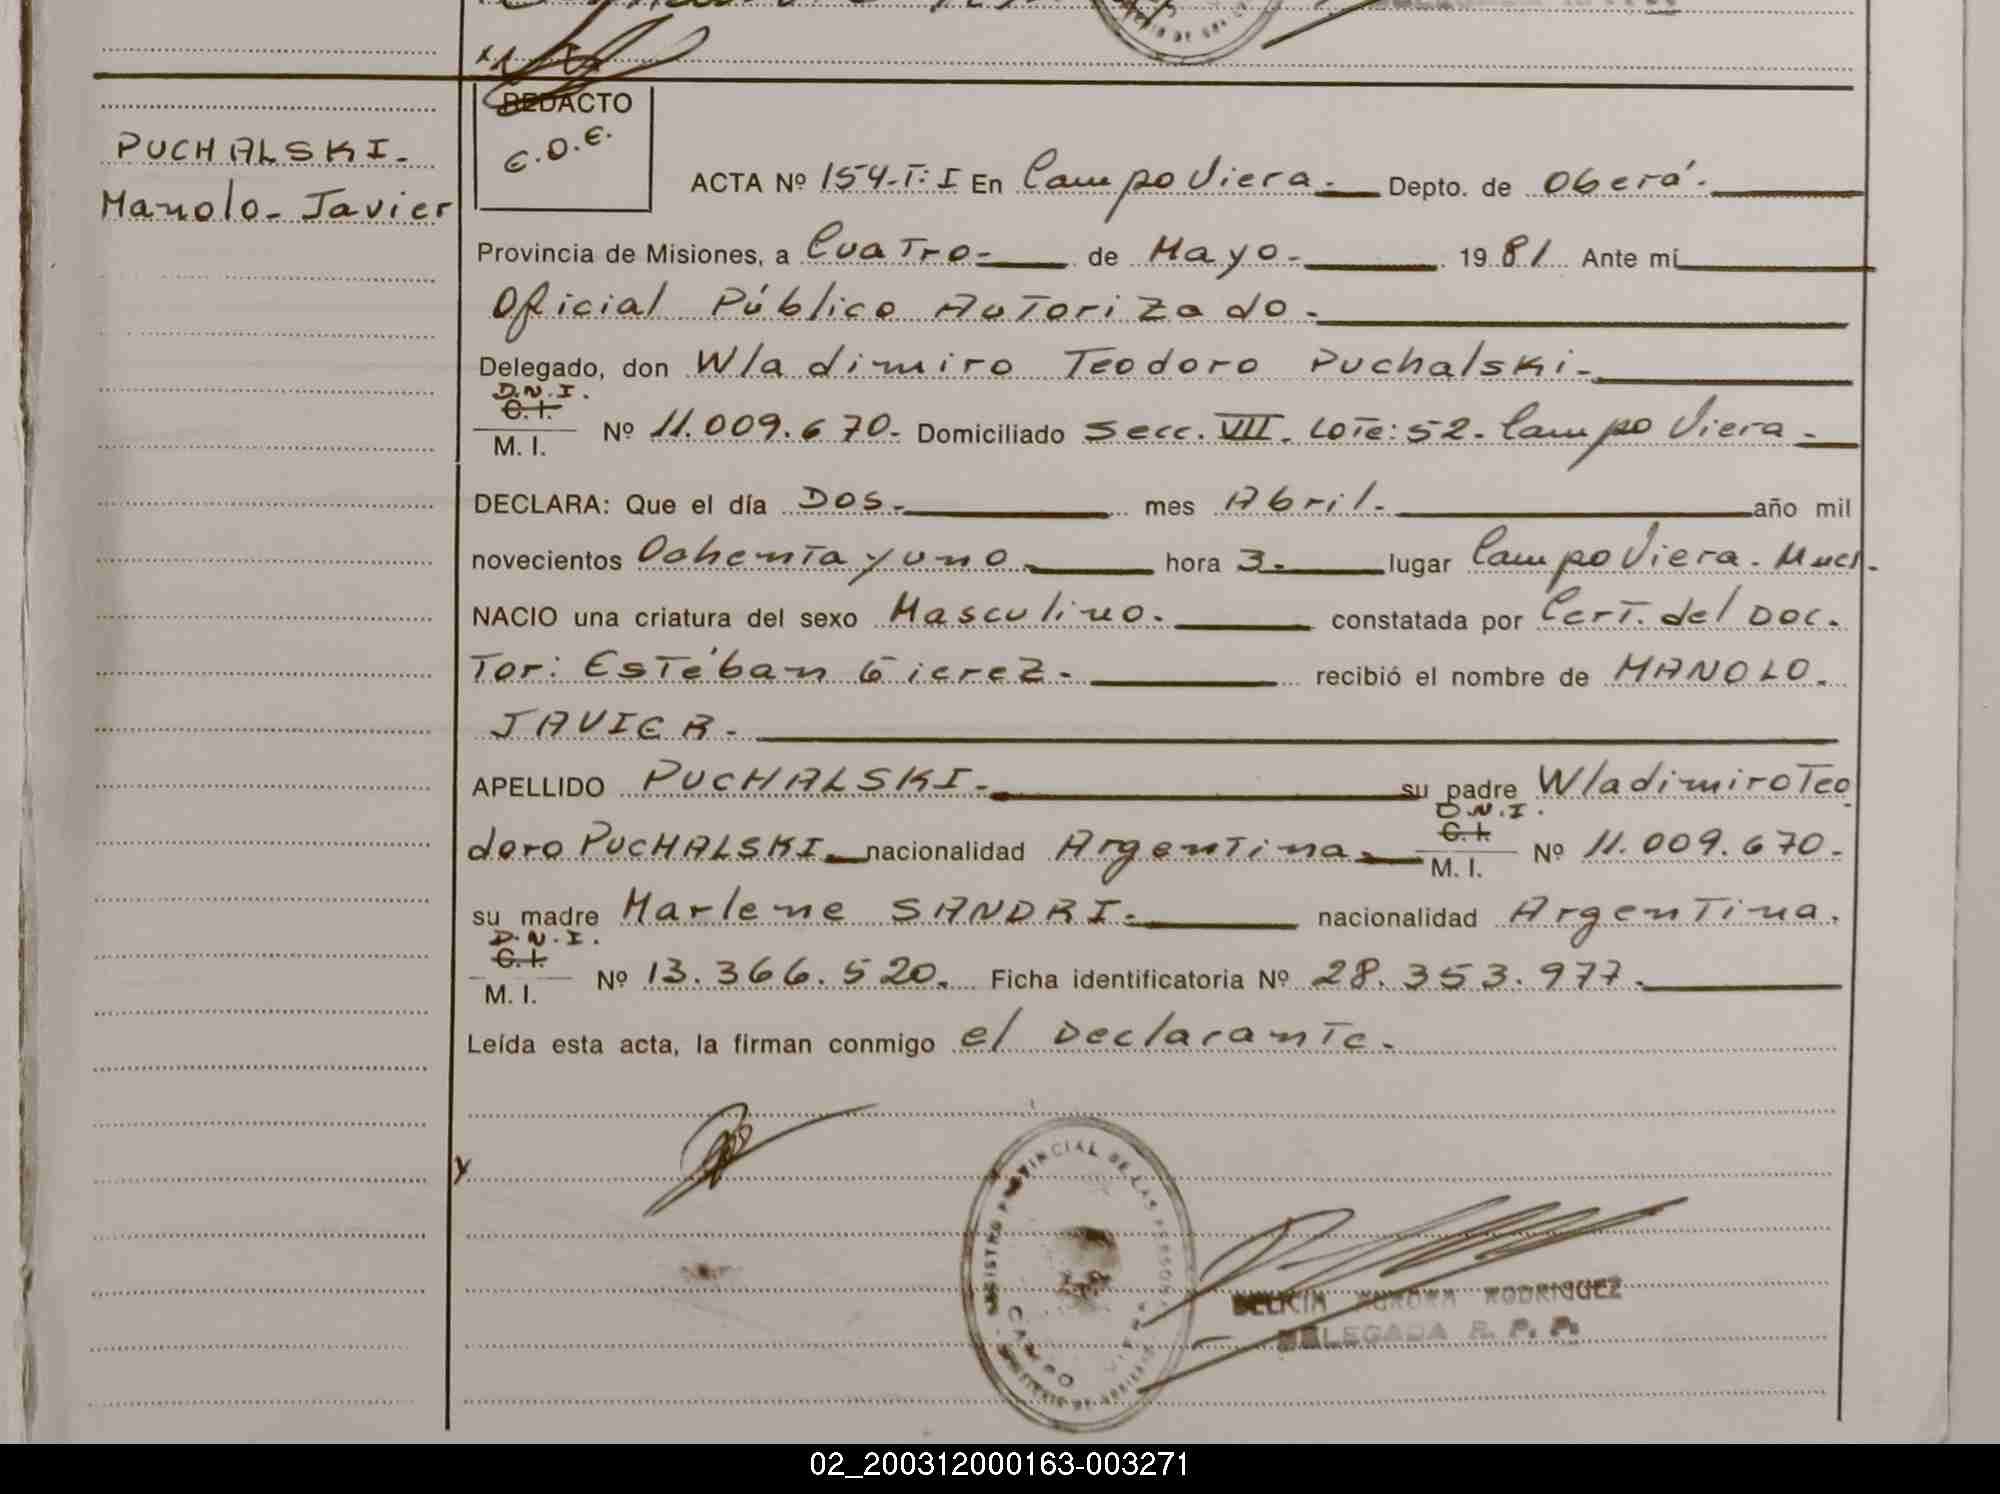 REDACTO
C.D.E.
PUCHALSKI.
Manolo- Javier
ACTA Nº 154-T: I En Campo Viera. Depto. de Oberá.
Provincia de Misiones, a Cuatro- de Mayo- 1981 Ante mí
Oficial Público Autorizado-
Delegado, don Wladimiro Teodoro Puchalski-
D.N.I.
C.I.
M. I. Nº 11.009.670- Domiciliado Secc. VII. Lote: 52- Campo Viera-
DECLARA: Que el día Dos- mes Abril- año mil
novecientos Ochenta y uno hora 3- lugar Campo Viera. Mnes.
NACIO una criatura del sexo Masculino- constatada por Cert. del Doc.
Tor: Estéban Gierez- recibió el nombre de MANOLO.
JAVIER-
APELLIDO PUCHALSKI- su padre Wladimiro Teo
D.N.I.
C.I.
doro PUCHALSKI. nacionalidad Argentina- M. I. Nº 11.009.670-
su madre Marlene SANDRI- nacionalidad Argentina.
D.N.I.
C.I.
M. I. Nº 13.366.520. Ficha identificatoria Nº 28.353.977-
Leída esta acta, la firman conmigo el Declarante-
REGISTRO PROVINCIAL DE LAS PERSONAS
CAMPO VIERA
DELICIA AURORA RODRIGUEZ
DELEGADA R. P. P.
02_200312000163-003271